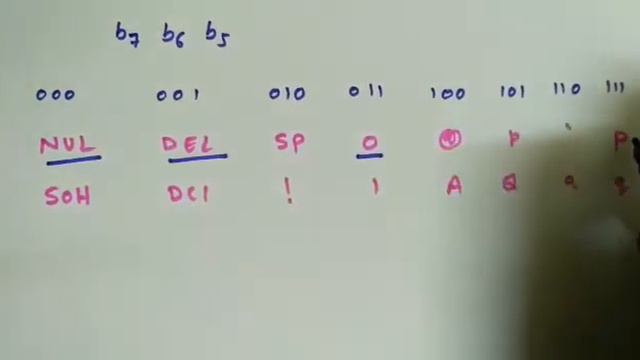 b7 b6 b5
000 001 010 011 100 101 110 111
NUL DEL SP 0 @ P ` P
SOH DC1 ! 1 A Q a q